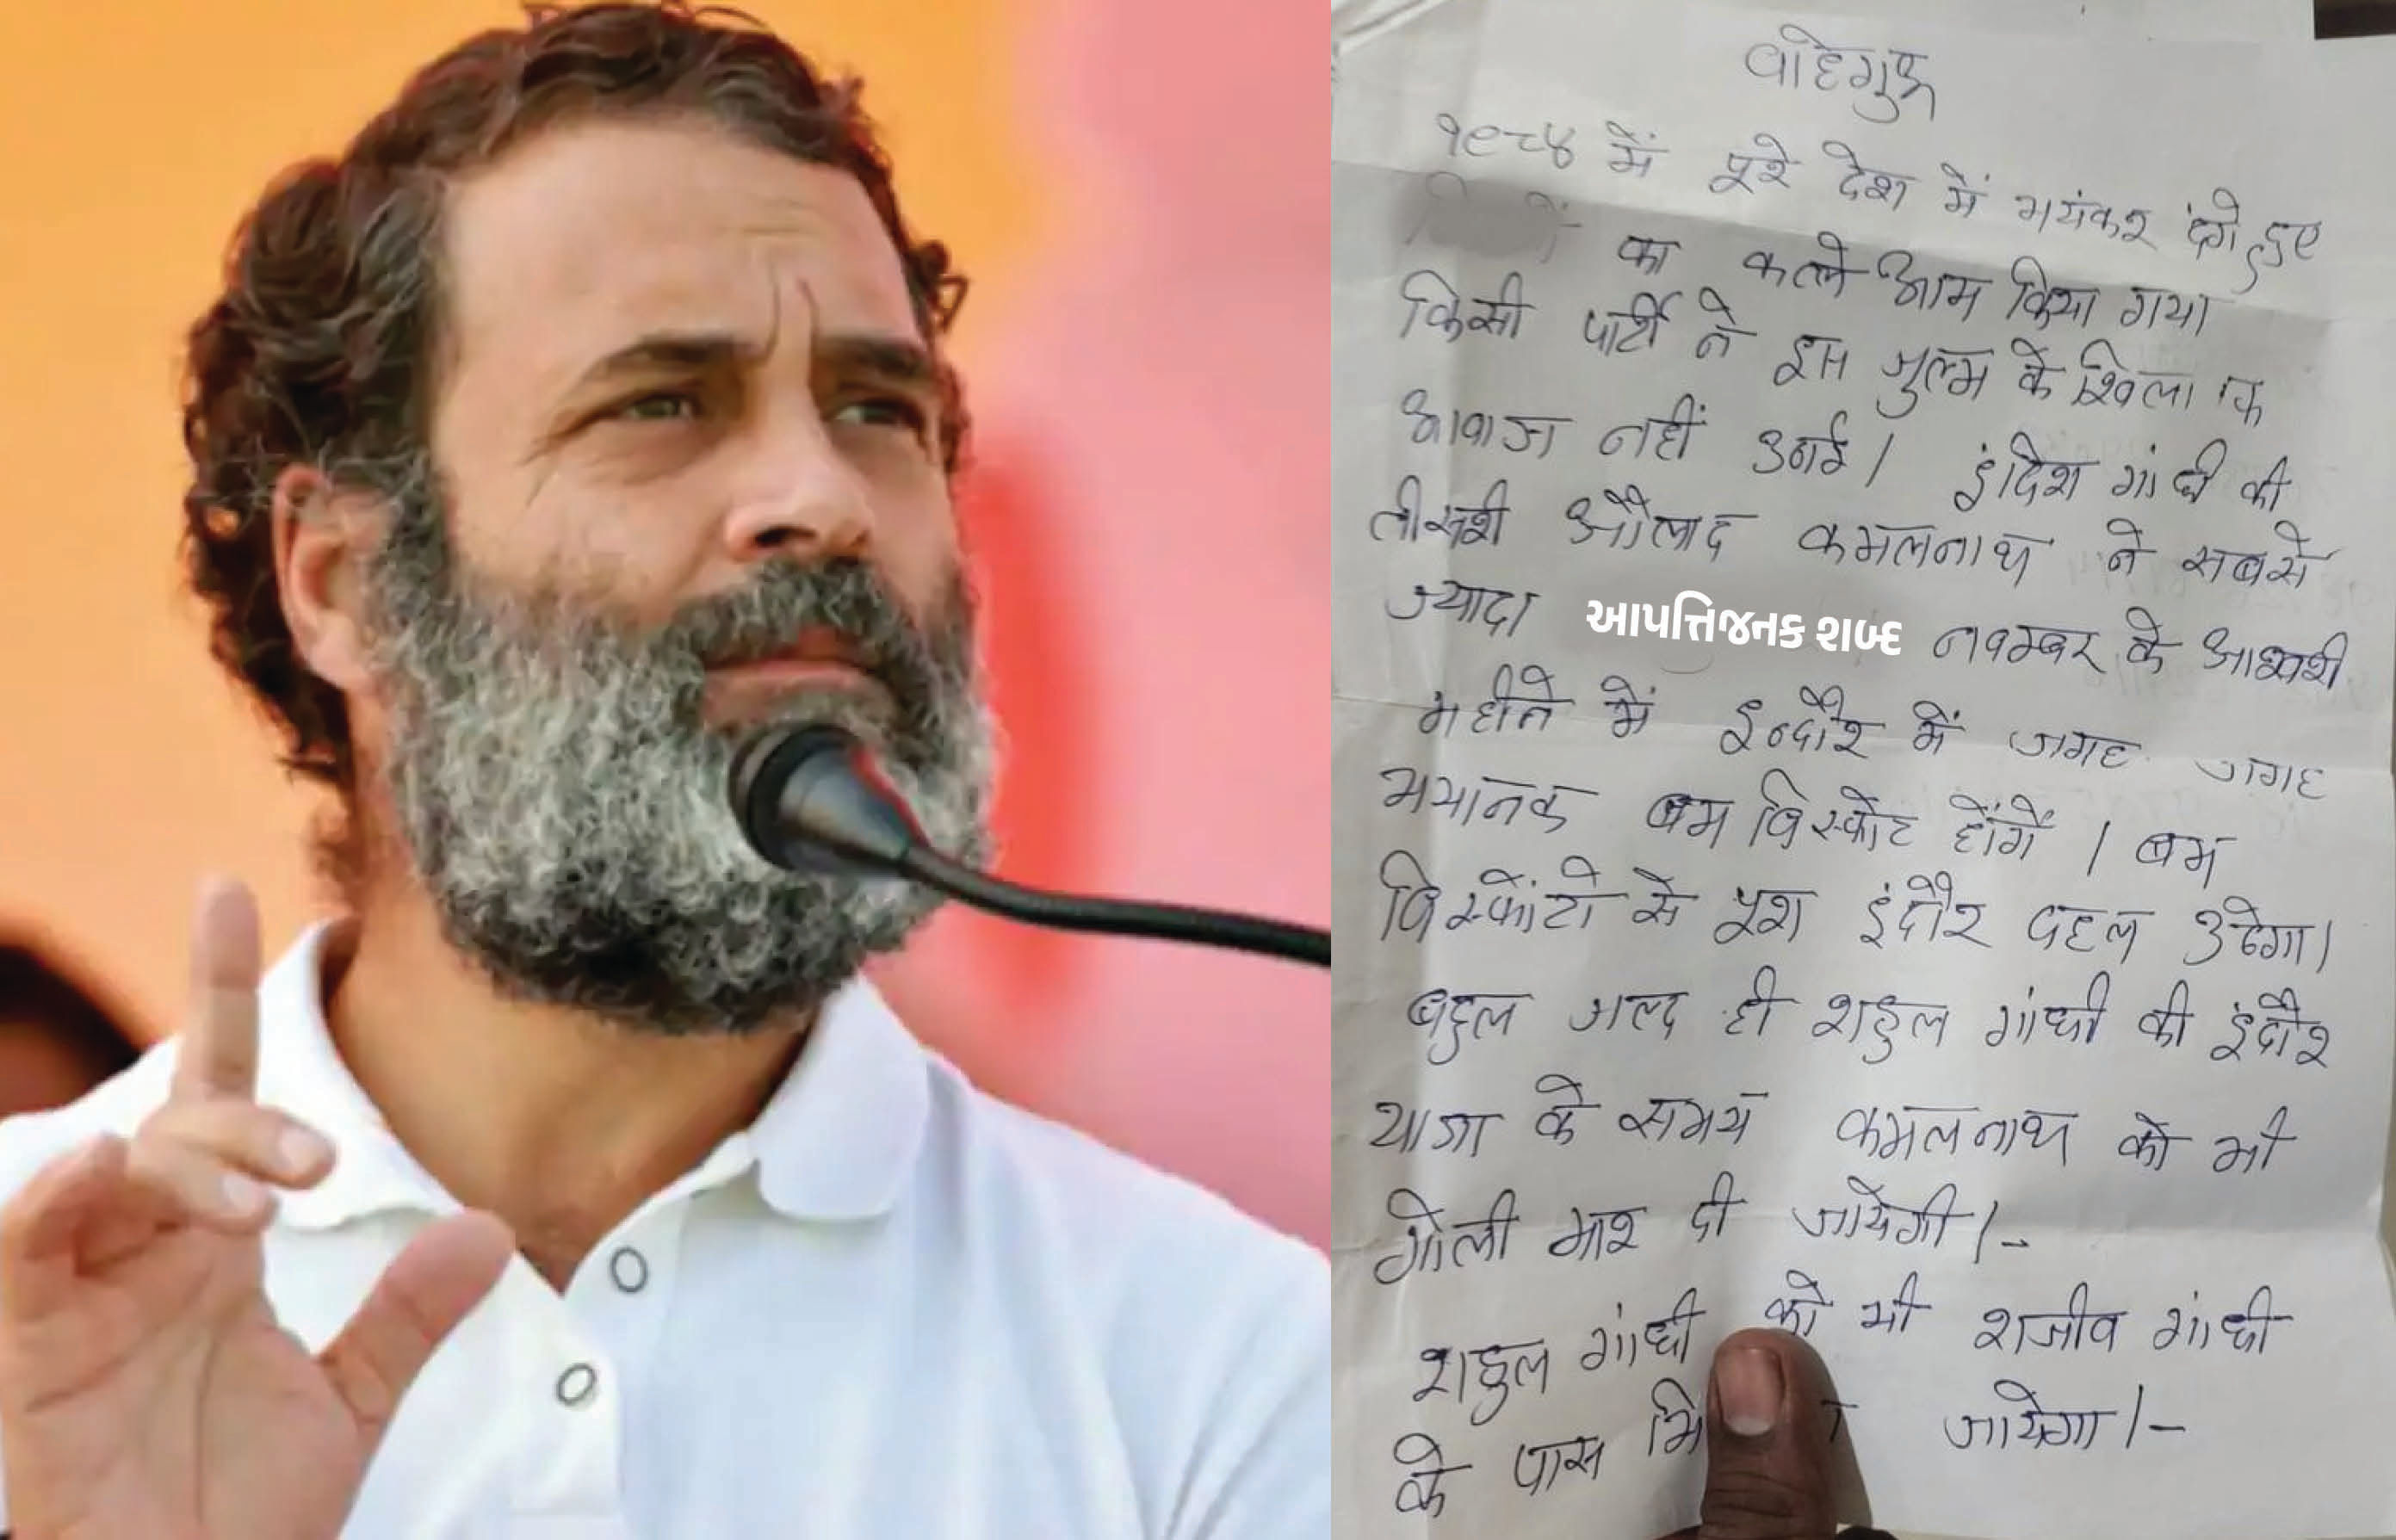 वाहेगुरू
१९८४ में पूरे देश में भयंकर दंगे हुए
का कत्ले आम किया गया
किसी पार्टी ने इस जुल्म के खिलाफ
आवाज नहीं उठाई। इंदिरा गांधी की
तीसरी औलाद कमलनाथ ने सबसे
ज्यादा આપત્તિજનક શબ્દ नवम्बर के आखरी
महीने में इन्दौर में जगह जगह
भयानक बम विस्फोट होंगें। बम
विस्फोंटो से पूरा इंदौर दहल उठेगा।
बहुत जल्द ही राहुल गांधी की इंदौर
यात्रा के समय कमलनाथ को भी
गोली मार दी जायेगी।-
राहुल गांधी को भी राजीव गांधी
के पास जायेगा।-